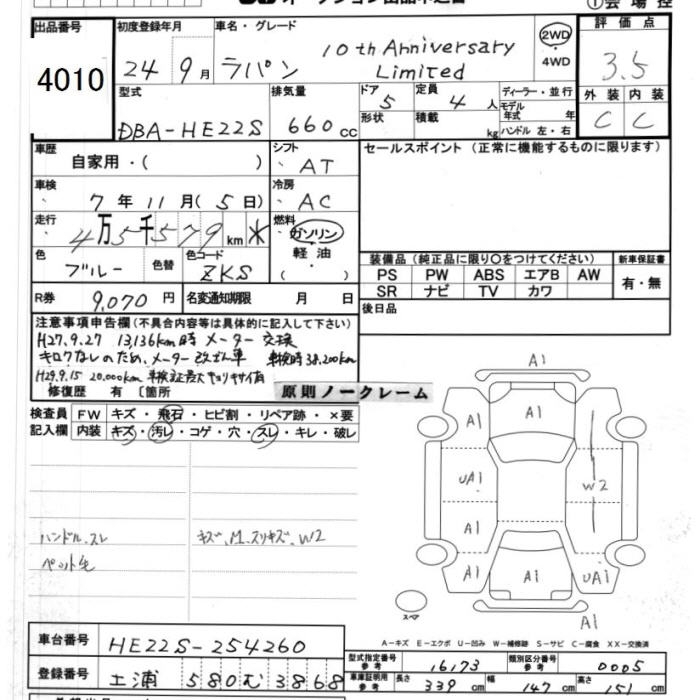 オークション出品申込書
①会場控
出品番号 4010
初度登録年月 24 9月
車名・グレード ラパン 10th Anniversary Limited
2WD ・ 4WD
評価点 3.5
外装 C 内装 C
型式 DBA-HE22S
排気量 660cc
ドア 5 形状
定員 4人 積載 kg
ディーラー・並行
モデル年式 年
ハンドル 左・右
車歴 自家用・( )
シフト AT
セールスポイント(正常に機能するものに限ります)
車検 7年11月(5日)
冷房 AC
走行 4万5千579km ※
燃料 ガソリン 軽油 ( )
色 ブルー 色替 色コード ZKS
装備品(純正品に限り○をつけてください) 新車保証書
PS PW ABS エアB AW 有・無
SR ナビ TV カワ
R券 9,070円 名変通知期限 月 日
後日品
注意事項申告欄(不具合内容等は具体的に記入して下さい)
H27.9.27 13,136km時 メーター交換
キロクなしのため、メーター改ざん車 車検時38,200km
H29.9.15 20,000km 車検証最大キョリキサイ有
修復歴 有 〔箇所
原則ノークレーム
検査員記入欄
FW キズ・飛石・ヒビ割・リペア跡・×要
内装 キズ・汚レ・コゲ・穴・スレ・キレ・破レ
ハンドル、スレ
キズ、M、スリキズ、W2
ペット毛
A1
A1 A1 A1
UA1 W2
A1
A1 A1 UA1
A1
スペア
A-キズ E-エクボ U-凹み W-補修跡 S-サビ C-腐食 XX-交換済
車台番号 HE22S-254260
型式指定番号 参考 16173 類別区分番号 参考 0005
登録番号 土浦 580 む 3868
車庫証明用 参考 長さ 339cm 幅 147cm 高さ 151cm